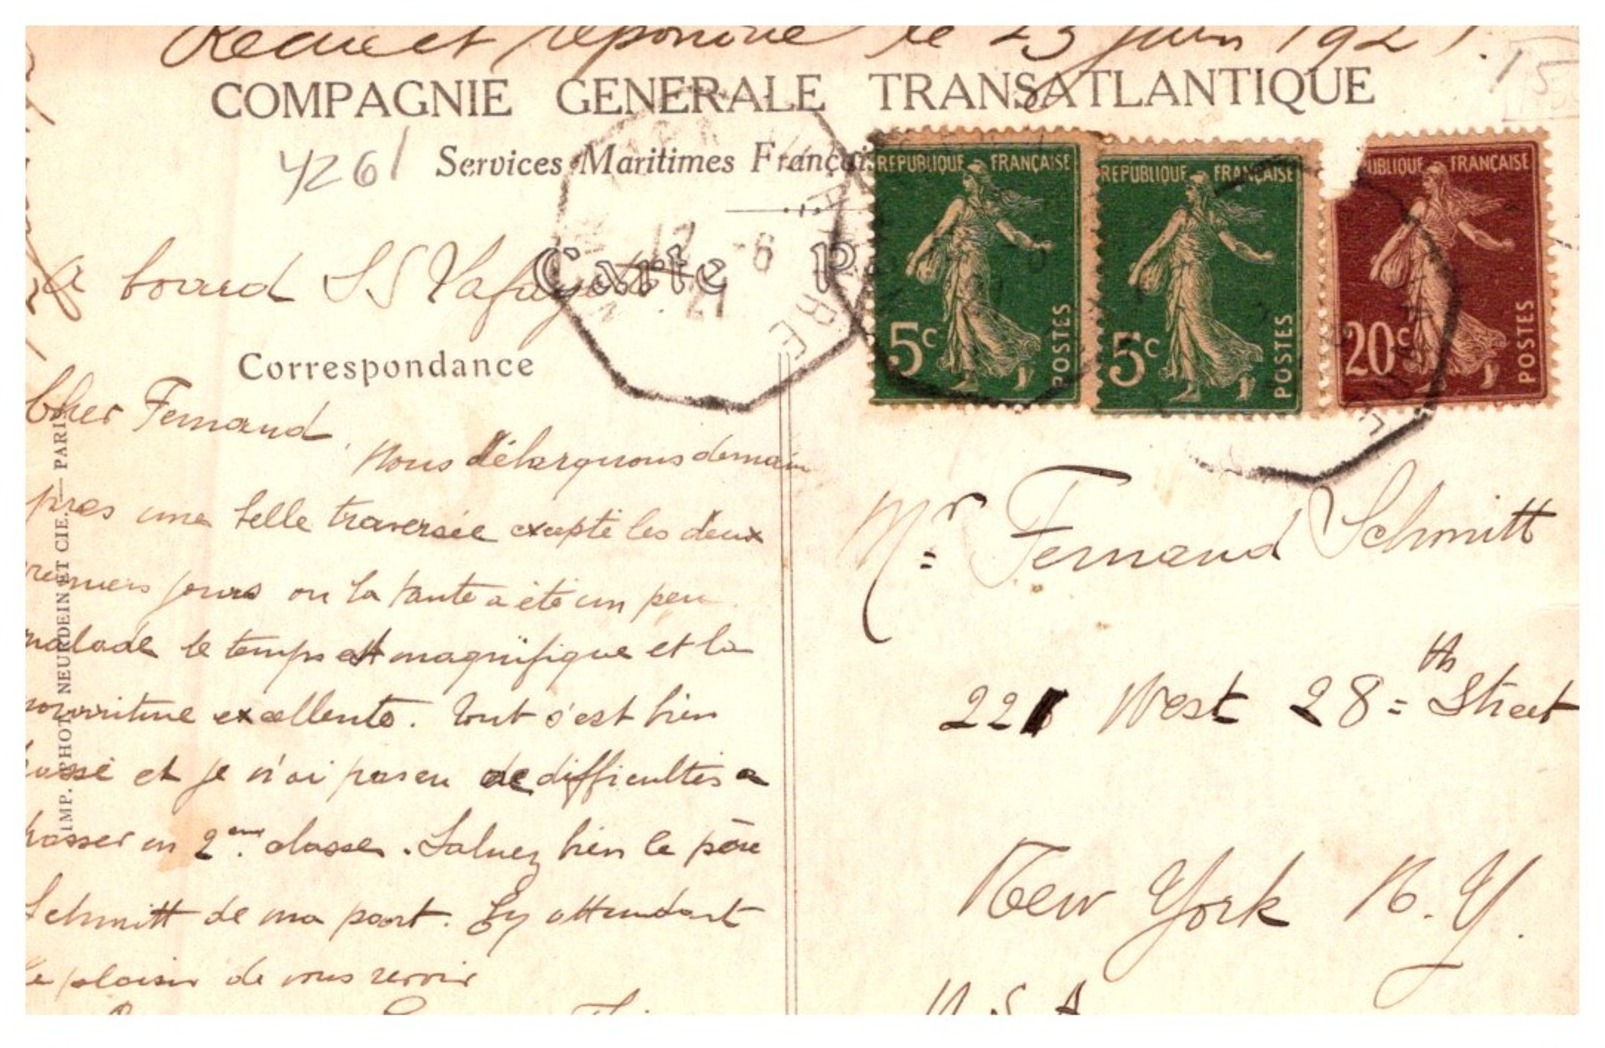 Recue et répondue le 23 juin 1921.
COMPAGNIE GENERALE TRANSATLANTIQUE
4261
Services Maritimes Français
Carte P
a board SS Lafayette
Correspondance
17 -6
21
REPUBLIQUE FRANÇAISE
5c
POSTES
REPUBLIQUE FRANÇAISE
5c
POSTES
UBLIQUE FRANÇAISE
20c
POSTES
Cher Fernand
Nous débarquons demain
pres une belle traversée excepté les deux
remiers jours ou la tante a été un peu
malade le temps est magnifique et la
nourriture excellente. Tout s'est bien
passé et je n'ai pas eu de difficultés a
passer en 2eme classe. Saluez bien le père
Schmitt de ma part. En attendant
le plaisir de vous revoir
IMP. PHOT. NEURDEIN ET CIE. — PARIS
Mr Fernand Schmitt
221 West 28th Street
New York N.Y.
U.S.A